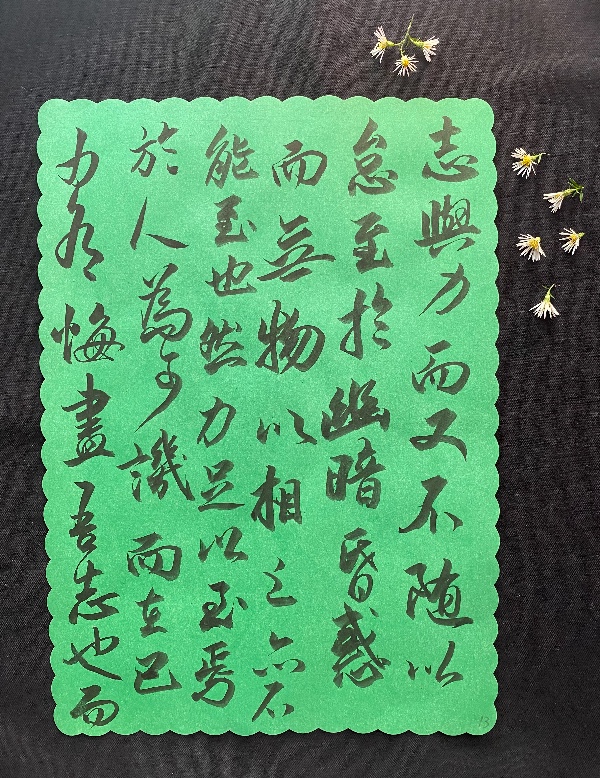 志與力而又不随以
怠至於幽暗昏惑
而無物以相之亦不
能至也然力足以至焉
於人為可譏而在己
为有悔盡吾志也而
13